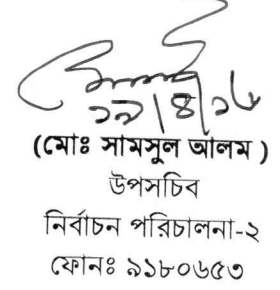 ১৯/৪/১৬
(মোঃ সামসুল আলম )
উপসচিব
নির্বাচন পরিচালনা-২
ফোনঃ ৯১৮০৬৫৩